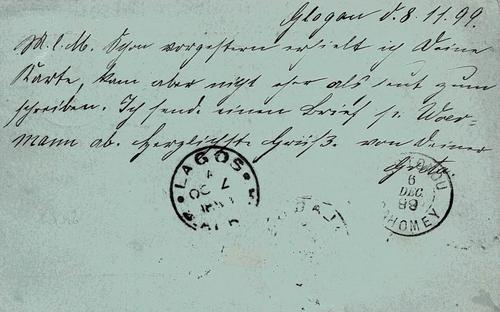 Glogau d. 8.11.99.
M. l. M. Schon vorgestern erhielt ich Deine
Karte, kam aber nicht eher als heut zum
schreiben. Ich sende einen Brief p. Woer-
mann ab. Herzlichste Grüße von Deiner
LAGOS
DEC
99
HOMEY